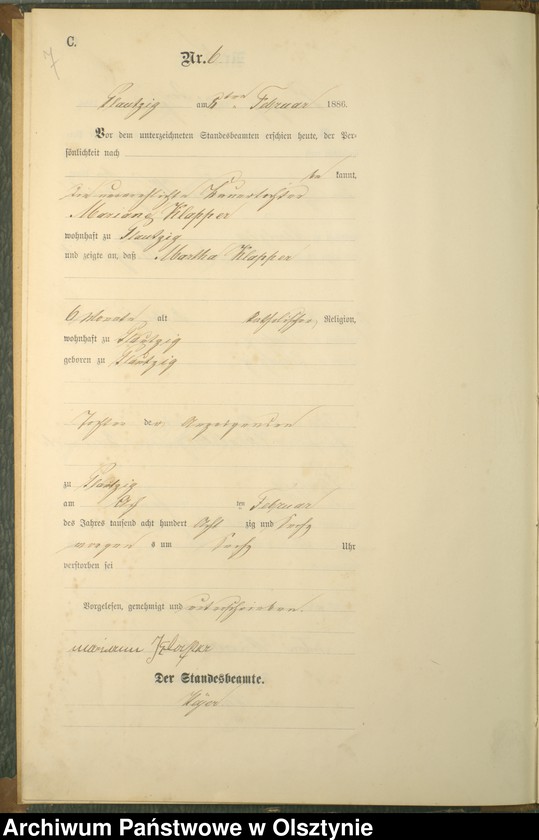 C.
7
Nr. 6
Plautzig am ten Februar 1886.
Vor dem unterzeichneten Standesbeamten erschien heute, der Per-
sönlichkeit nach
be kannt,
die unverehelichte
Klapper
wohnhaft zu Plautzig
und zeigte an, daß Martha Klapper
6 Monate alt katholischer Religion,
wohnhaft zu Plautzig
geboren zu Plautzig
Tochter der Anzeigenden
zu Plautzig
am ten Februar
des Jahres tausend acht hundert acht zig und sechs
morgens um sechs Uhr
verstorben sei
Vorgelesen, genehmigt und unterschrieben.
Der Standesbeamte.
Archiwum Państwowe w Olsztynie